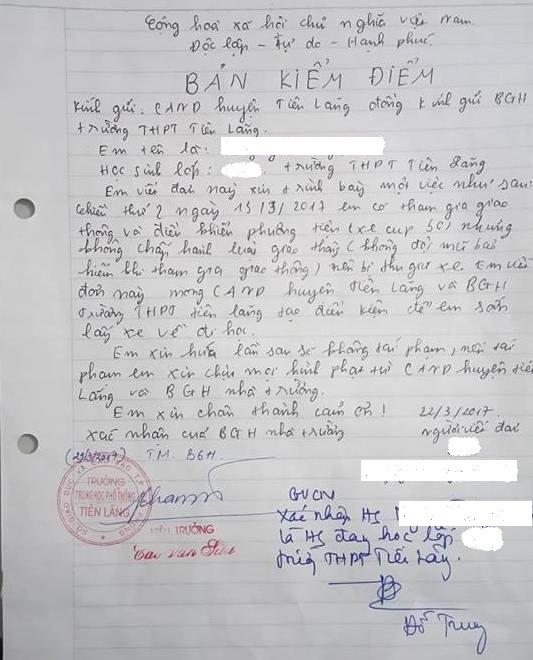 Cộng hoà xã hội chủ nghĩa việt nam
Độc lập - Tự do - Hạnh phúc.
BẢN KIỂM ĐIỂM
Kính gửi: CAND huyện Tiên Lãng đồng kính gửi BGH
trường THPT Tiên Lãng.
Em tên là:
Học sinh lớp: trường THPT Tiên Lãng
Em viết đơn này xin trình bày một việc như sau:
Chiều thứ 2 ngày 13/3/2017 em có tham gia giao
thông và điều khiển phương tiện (xe cup 50) nhưng
không chấp hành luật giao thông (không đội mũ bảo
hiểm khi tham gia giao thông) nên bị thu giữ xe. Em viết
đơn này mong CAND huyện Tiên Lãng và BGH
trường THPT tiên lãng tạo điều kiện để em sớm
lấy xe về đi học.
Em xin hứa lần sau sẽ không tái phạm, nếu tái
phạm em xin chịu mọi hình phạt từ CAND huyện tiên
Lãng và BGH nhà trường.
Em xin chân thành cảm ơn! 22/3/2017.
Xác nhận của BGH nhà trường người viết đơn
(22/3/2017) TM. BGH
SỞ GIÁO DỤC VÀ ĐÀO TẠO T.P
TRƯỜNG
TRUNG HỌC PHỔ THÔNG
TIÊN LÃNG
HIỆU TRƯỞNG
GVCN
Xác nhận HS
là HS đang học lớp
trường THPT Tiên Lãng.
Đỗ Trung